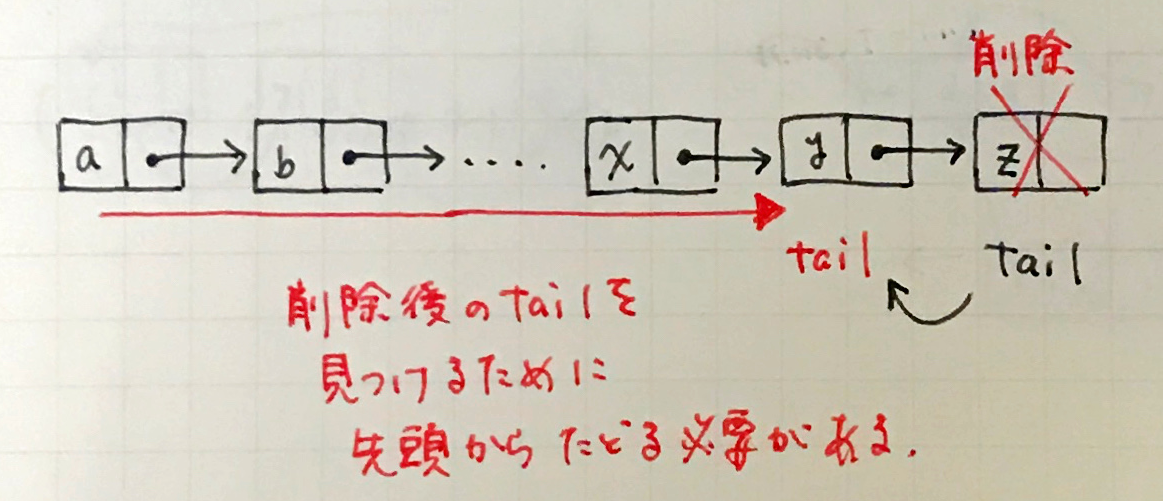 削除
a b ..... x y z
tail tail
削除後のtailを
見つけるために
先頭からたどる必要がある.